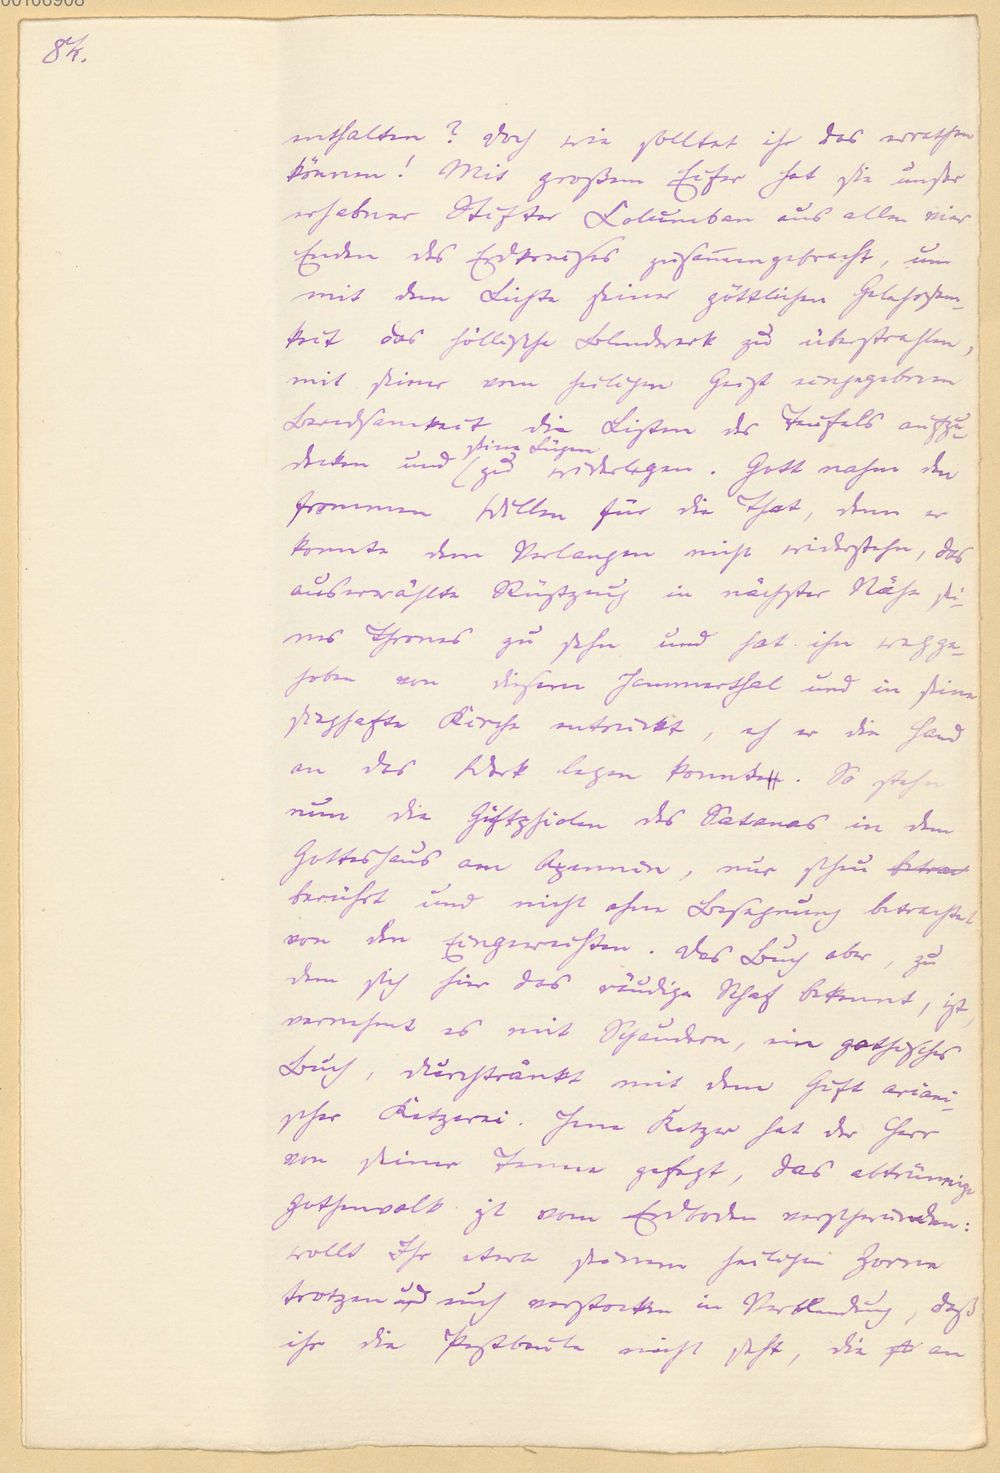 00106908
84.
enthalten? Doch wie solltet ihr das errathen
können! Mit großem Eifer hat sie unser
erhabner Stifter Columban aus allen vier
Enden des Erdkreises zusam̅engebracht, um
mit dem Lichte seiner göttlichen Gelehrsam-
keit das höllische Blendwerk zu überstrahlen,
mit seiner vom heiligen Geist eingegebenen
Beredsamkeit die Listen des Teufels aufzu-
decken und (seine Lügen zu widerlegen. Gott nahm den
frommen Willen für die That, denn er
konnte dem Verlangen nicht widerstehn, das
auserwählte Rüstzeug in nächster Nähe sei-
nes Thrones zu sehn und hat ihn wegge-
hoben von diesem Jammerthal und in seine
sieghafte Kirche entrückt, eh er die Hand
an das Werk legen konnte. So stehn
nun die Giftphiolen des Satanas in dem
Gotteshaus am Apennin, nur scheu betrac
berührt und nicht ohne Besegnung betrachtet
von den Eingeweihten. Das Buch aber, zu
dem sich hier das räudige Schaf bekennt, ist,
vernehmt es mit Schaudern, ein gothisches
Buch, durchtränkt mit dem Gift ariani-
scher Ketzerei. Jene Ketzer hat der Herr
von seiner Tenne gefegt, das abtrünnige
Gothenvolk ist vom Erdboden verschwunden:
wollt Ihr etwa seinem heiligen Zorne
trotzen und euch verstocken in Verblendung, daß
ihr die Pestbeule nicht seht, die an